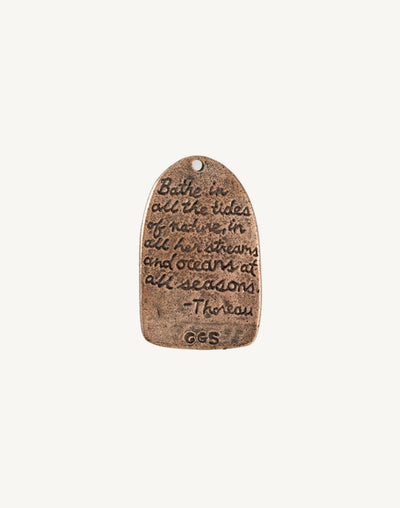 Bathe in
all the tides
of nature, in
all her streams
and oceans at
all seasons.
-Thoreau
GGS